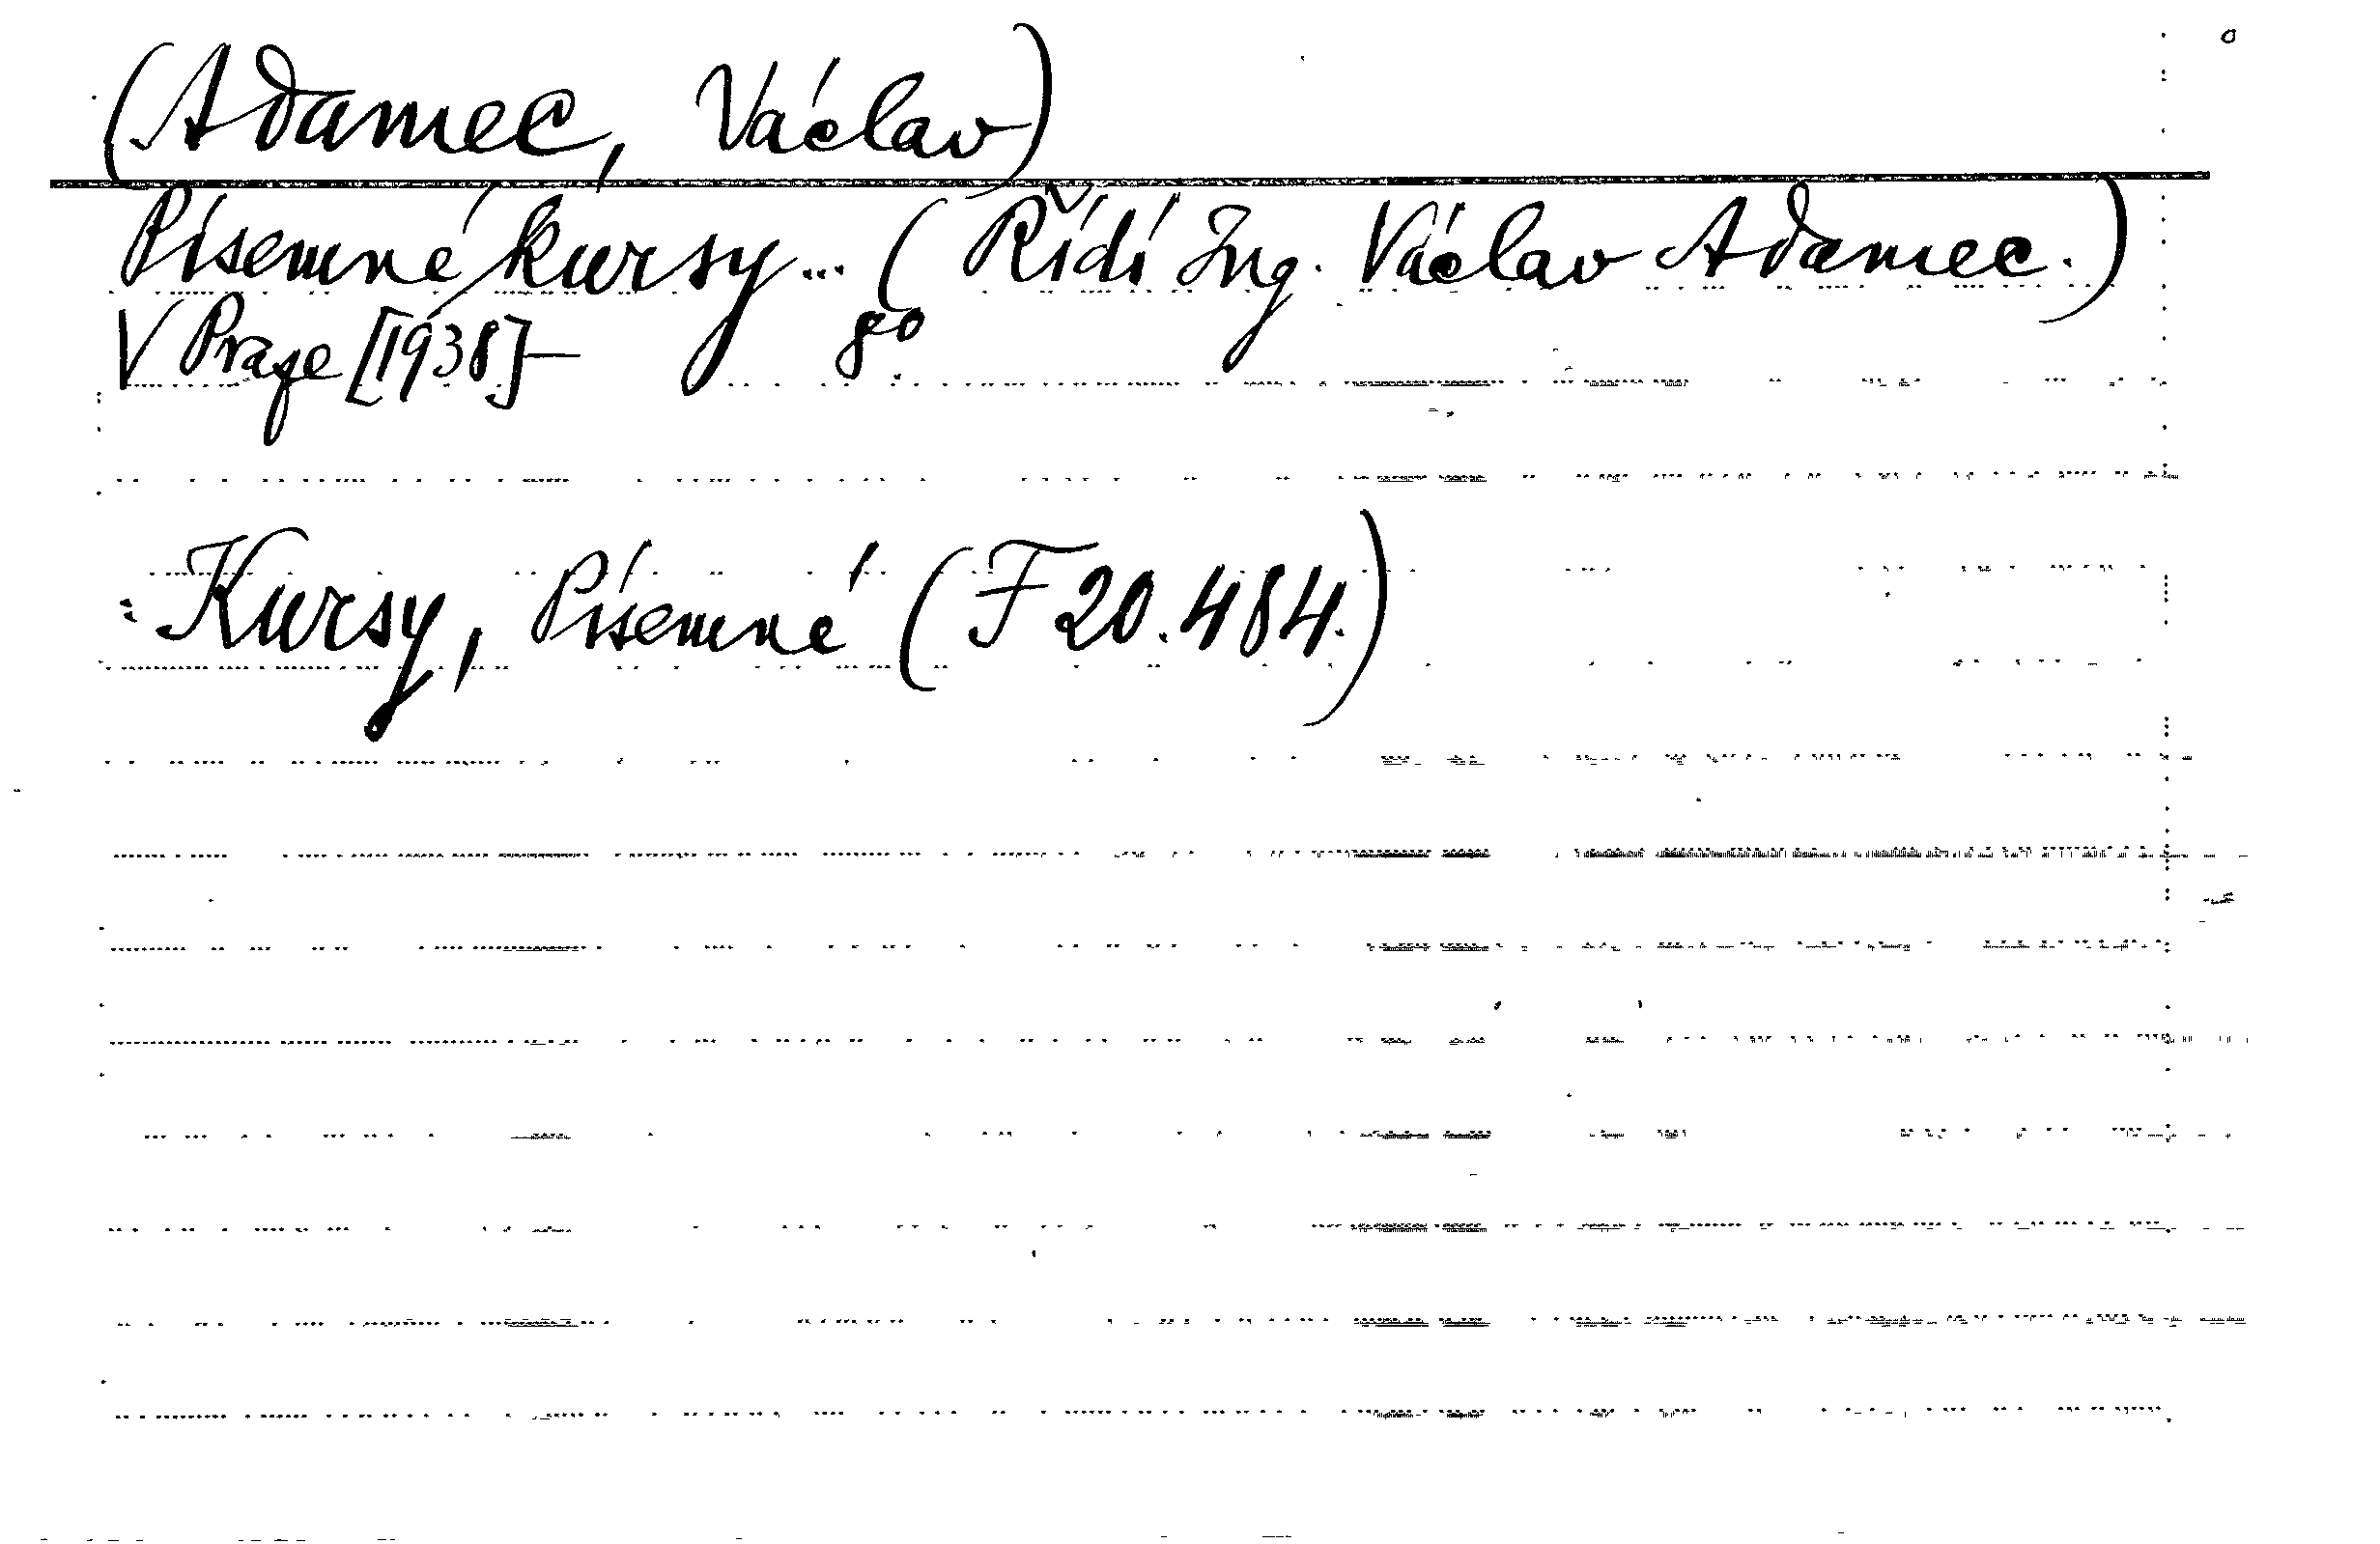 (Adamec, Václav)
Písemné kursy... (Řídí Ing. Václav Adamec.)
V Praze [1938]- 8°
: Kursy, Písemné (F 20.484.)